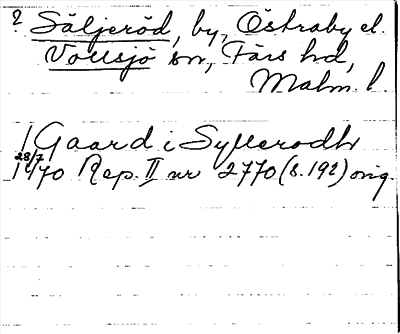 ? Säljeröd, by, Östraby el.
Vollsjö sn, Färs hd,
Malm. l.
1 Gaard i Syllerodh
28/7
1470 Rep. II nr 2770 (s. 192) orig.